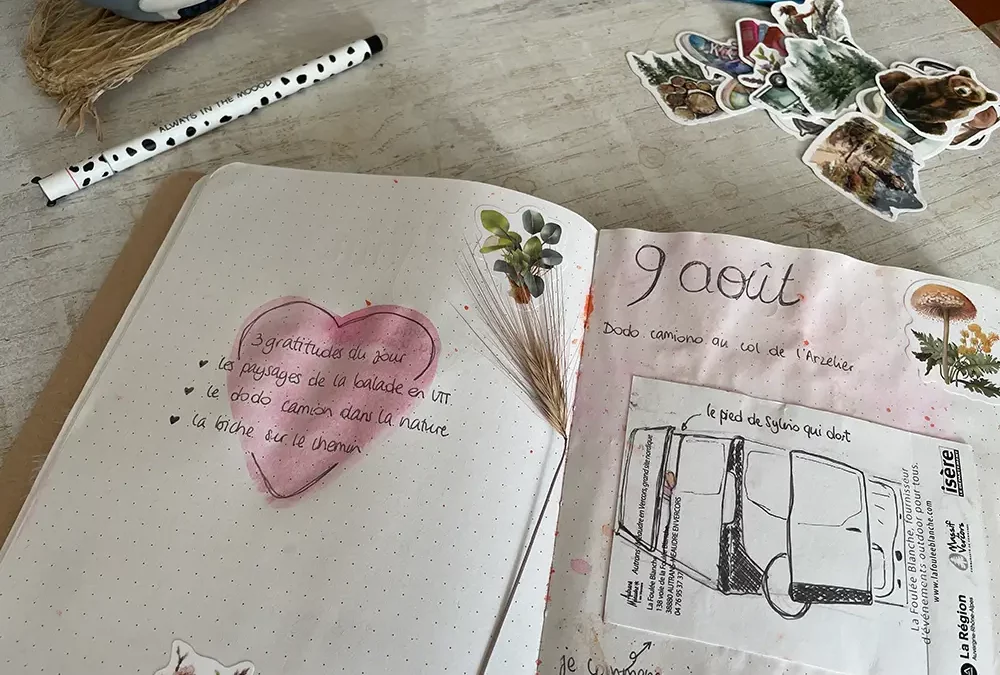 ALWAYS IN THE MOOOD
3 gratitudes du jour
♥ les paysages de la balade en VTT
♥ le dodo camion dans la nature
♥ la biche sur le chemin
9 août
Dodo camiono au col de l'Arzelier
le pied de Sylvio qui dort
Autrans-Méaudre en Vercors, grand site nordique
La Foulée Blanche
138 voie de la Foulée
38880 AUTRANS-MÉAUDRE EN VERCORS
04 76 95 37 37
La Foulée Blanche, fournisseur
d'événements outdoor pour tous.
www.lafouleeblanche.com
isère
Massif Vercors
La Région
Auvergne-Rhône-Alpes
je